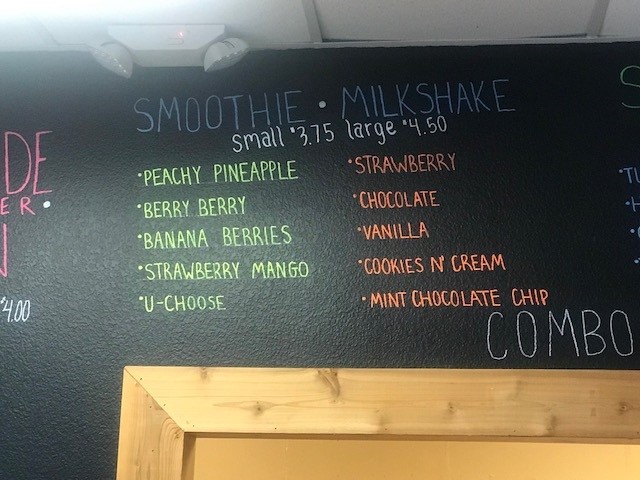 SMOOTHIE • MILKSHAKE
small $3.75 large $4.50
•PEACHY PINEAPPLE
•BERRY BERRY
•BANANA BERRIES
•STRAWBERRY MANGO
•U-CHOOSE
•STRAWBERRY
•CHOCOLATE
•VANILLA
•COOKIES N' CREAM
•MINT CHOCOLATE CHIP
COMBO
DE
ER •
N
$4.00
S
•TU
•H